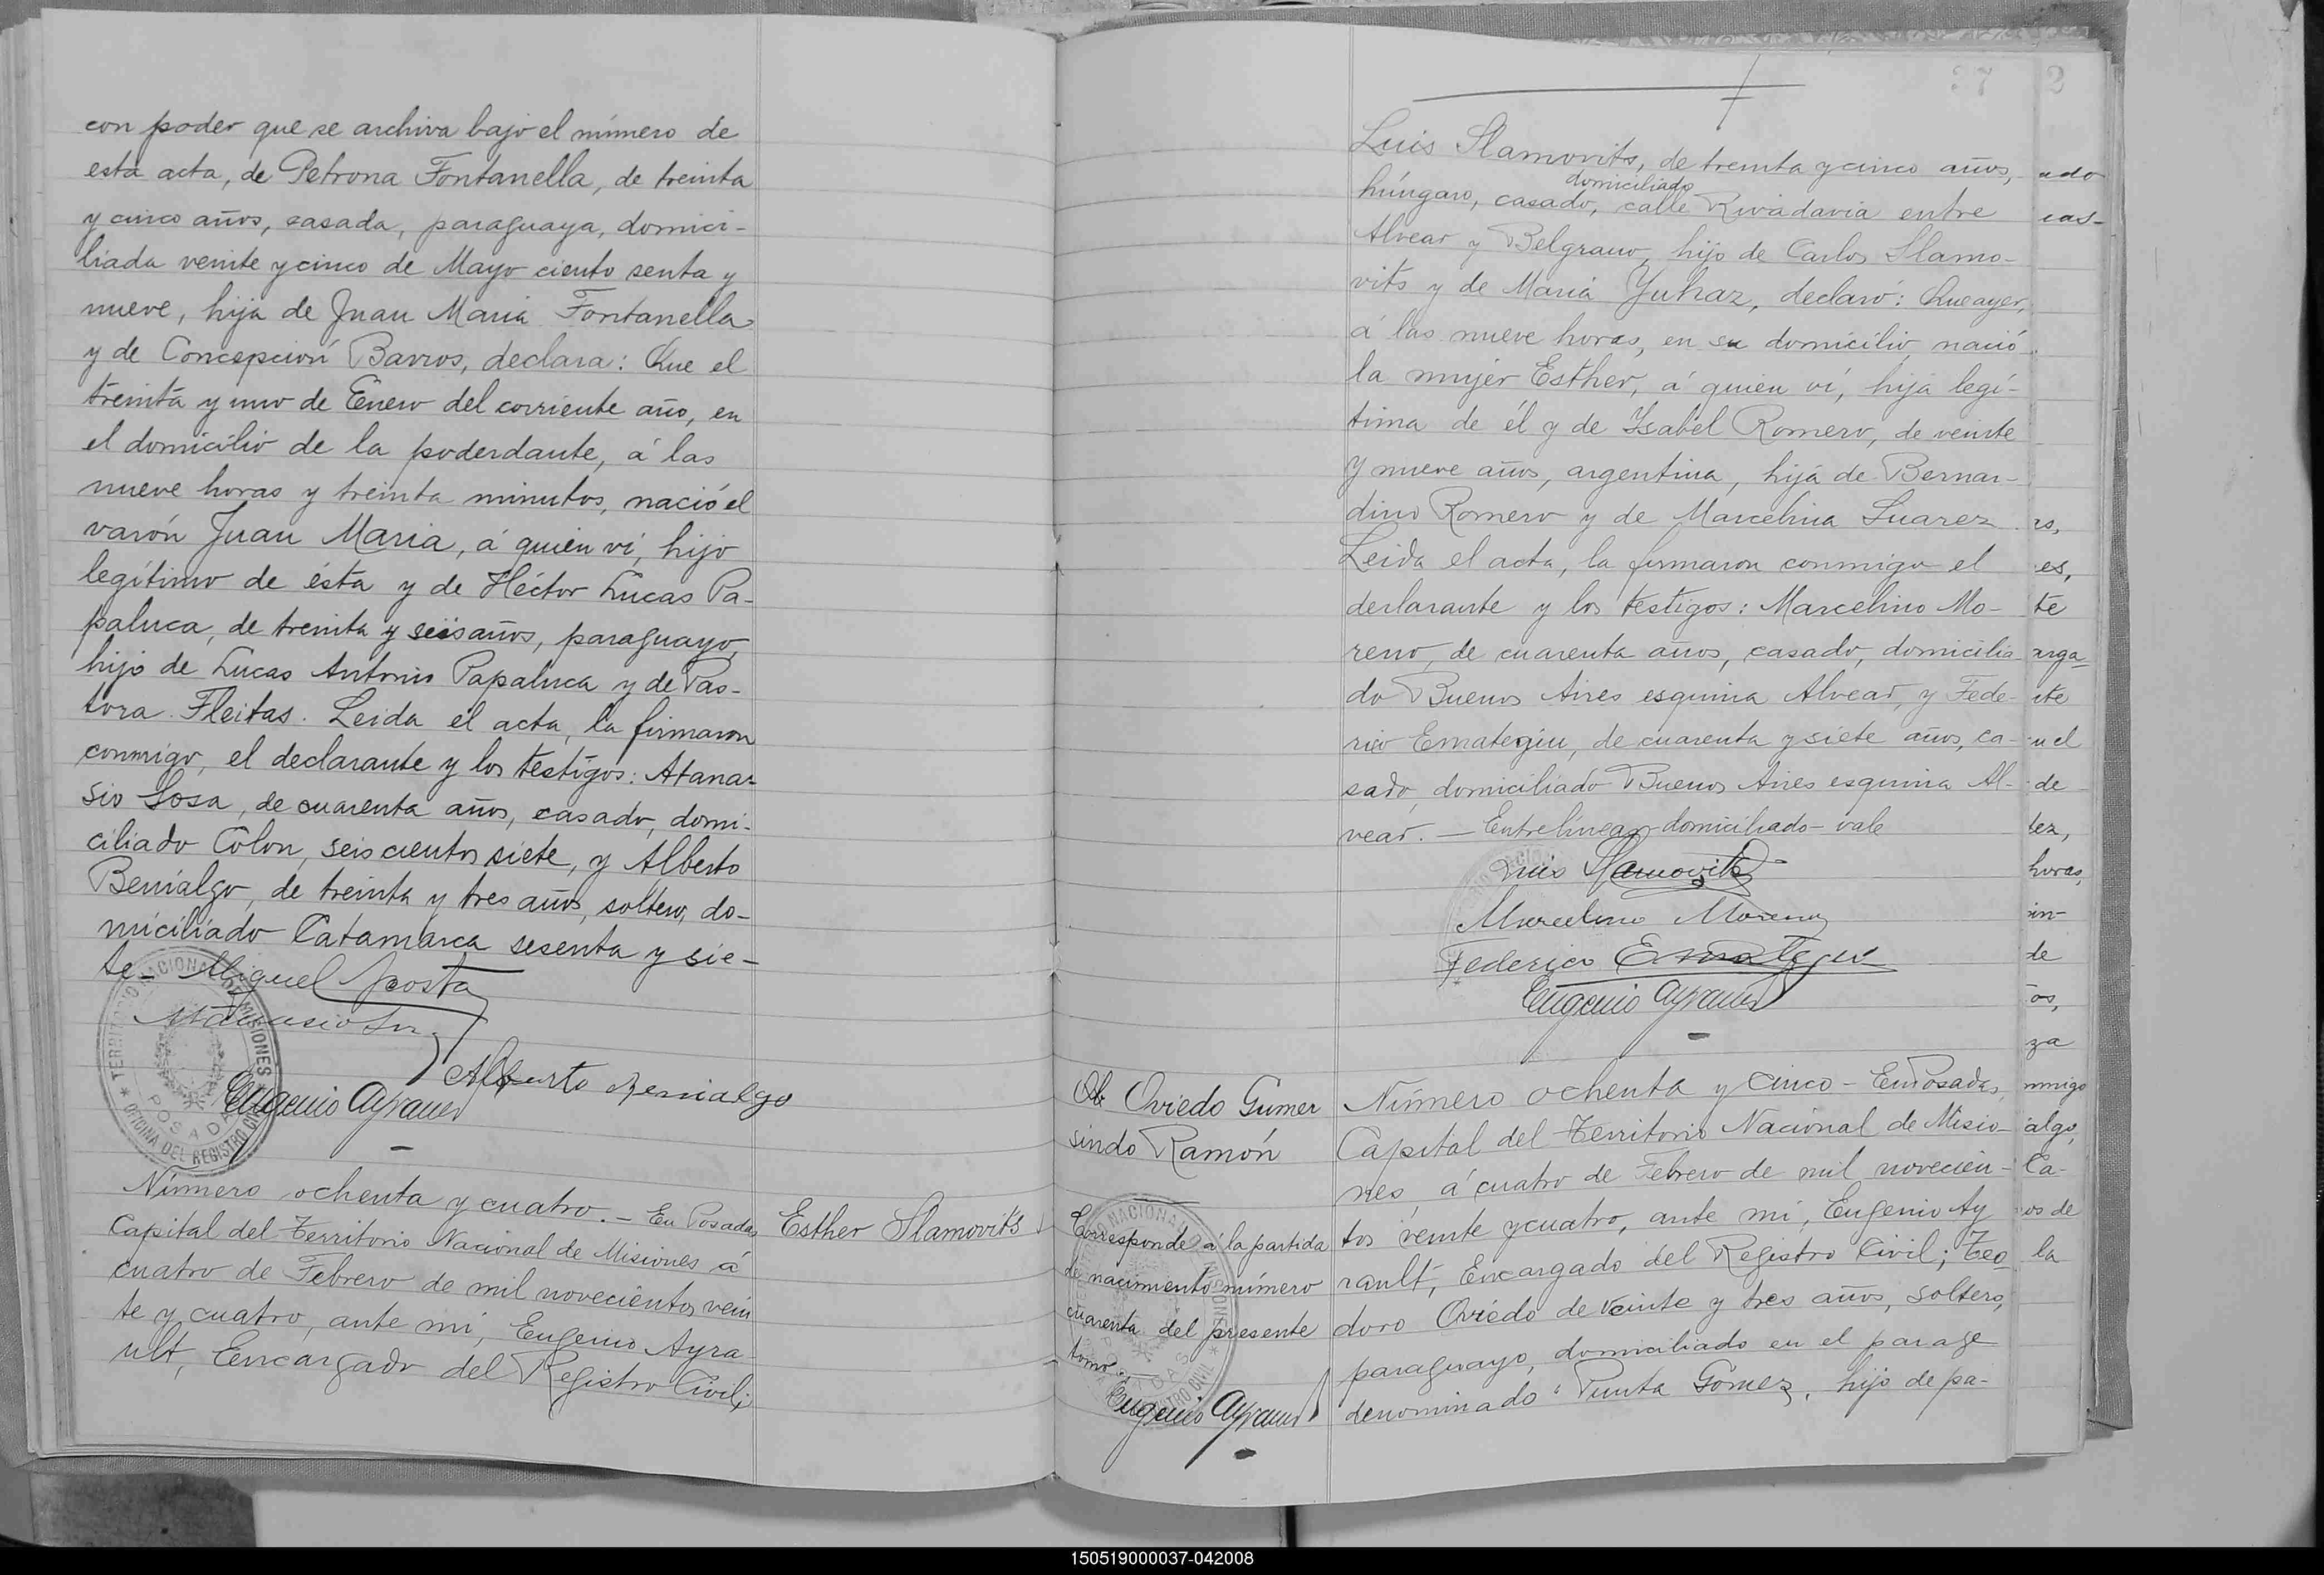 con poder que se archiva bajo el número de
esta acta, de Petrona Fontanella, de treinta
y cinco años, casada, paraguaya, domici-
liada veinte y cinco de Mayo ciento senta y
nueve, hija de Juan Maria Fontanella
y de Concepción Barros, declara: Que el
treinta y uno de Enero del corriente año, en
el domicilio de la poderdante, á las
nueve horas y treinta minutos, nació el
varón Juan Maria, á quien ví, hijo
legítimo de ésta y de Héctor Lucas Pa-
paluca, de treinta y seis años, paraguayo,
hijo de Lucas Antonio Papaluca y de Pas-
tora Fleitas. Leida el acta, la firmaron
conmigo, el declarante y los testigos: Atana-
sio Sosa, de cuarenta años, casado, domi-
ciliado Colon, seiscientos siete, y Alberto
Benialgo, de treinta y tres años, soltero, do-
miciliado Catamarca sesenta y sie-
te-
Miguel Acosta
Atanasio
Alberto Benialgo
Eugenio Ayrault
TERRITORIO NACIONAL DE MISIONES
POSADAS
OFICINA DEL REGISTRO CIVIL
Número ochenta y cuatro. - En Posadas
Capital del Territorio Nacional de Misiones á
cuatro de Febrero de mil novecientos vein
te y cuatro, ante mi, Eugenio Ayra
ult, Encargado del Registro Civil;
Esther Slamovits
37
Luis Slamovits, de treinta y cinco años,
domiciliado
húngaro, casado, calle Rivadavia entre
Alvear y Belgrano, hijo de Carlos Slamo-
vits y de Maria Yuhaz, declaró: Que ayer,
á las nueve horas, en su domicilio, nació
la mujer Esther, á quien ví, hija legí-
tima de él y de Ysabel Romero, de veinte
y nueve años, argentina, hija de Bernar-
dino Romero y de Marcelina Suarez
Leida el acta, la firmaron conmigo el
declarante y los testigos: Marcelino Mo-
reno, de cuarenta años, casado, domicilia
do Buenos Aires esquina Alvear, y Fede-
rico Emategui, de cuarenta y siete años, ca-
sado, domiciliado Buenos Aires esquina Al-
vear. - Entrelíneas-domiciliado-vale
Luis Slamovits
Marcelino Moreno
Federico Emategui
Eugenio Ayrault
Oviedo Gumer
sindo Ramón
Corresponde á la partida
de nacimiento número
cuarenta del presente
tomo.
Eugenio Ayrault
Número ochenta y cinco - En Posadas,
Capital del Territorio Nacional de Misio-
nes, á cuatro de Febrero de mil novecien-
tos veinte y cuatro, ante mi, Eugenio Ay
rault, Encargado del Registro Civil; Teo
doro Oviedo de veinte y tres años, soltero,
paraguayo, domiciliado en el parage
denominado "Punta Gomez, hijo de pa-
2
ado
cas-
rs,
es,
te
arga-
ite
n el
de
tez,
horas,
in-
de
os,
za
nmigo
algo,
Ca-
os de
la
150519000037-042008